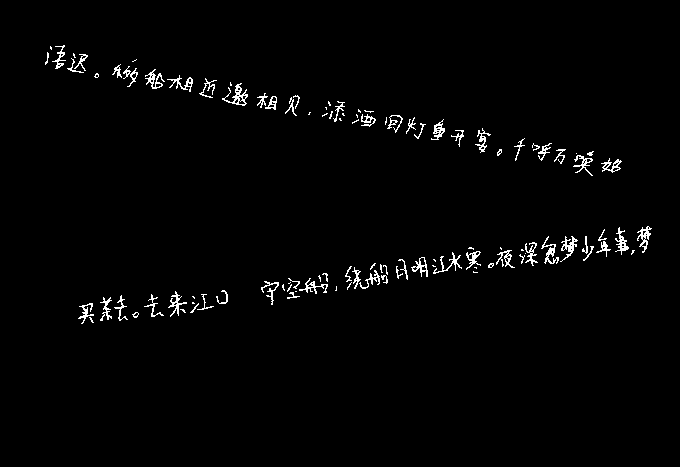 语迟。移船相近邀相见，添酒回灯重开宴。千呼万唤始
买茶去。去来江口 守空船，绕船月明江水寒。夜深忽梦少年事，梦